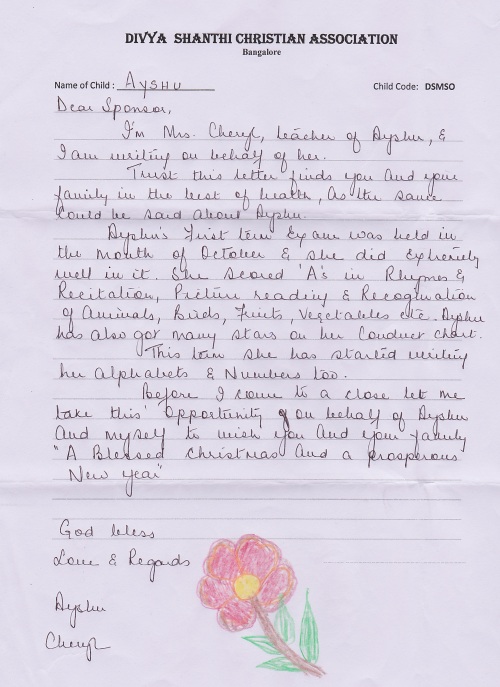 DIVYA SHANTHI CHRISTIAN ASSOCIATION
Bangalore
Name of Child : AYSHU
Child Code: DSMSO
Dear Sponsor,
I'm Mrs. Cheryl, teacher of Ayshu, &
I am writing on behalf of her.
Trust this letter finds you and your
family in the best of health, As the same
Could be said about Ayshu.
Ayshu's First term Exam was held in
the month of October & she did Extremely
well in it. She scored 'A's in Rhymes &
Recitation, Picture reading & Recognation
of Animals, Birds, Fruits, Vegetables etc. Ayshu
has also got many stars on her Conduct chart.
This term she has started writing
her alphabets & Numbers too.
Before I come to a close let me
take this opportunity on behalf of Ayshu
And myself to wish you And your family
"A Blessed Christmas And a prosperous
New year"
God bless
Love & Regards
Ayshu
Cheryl